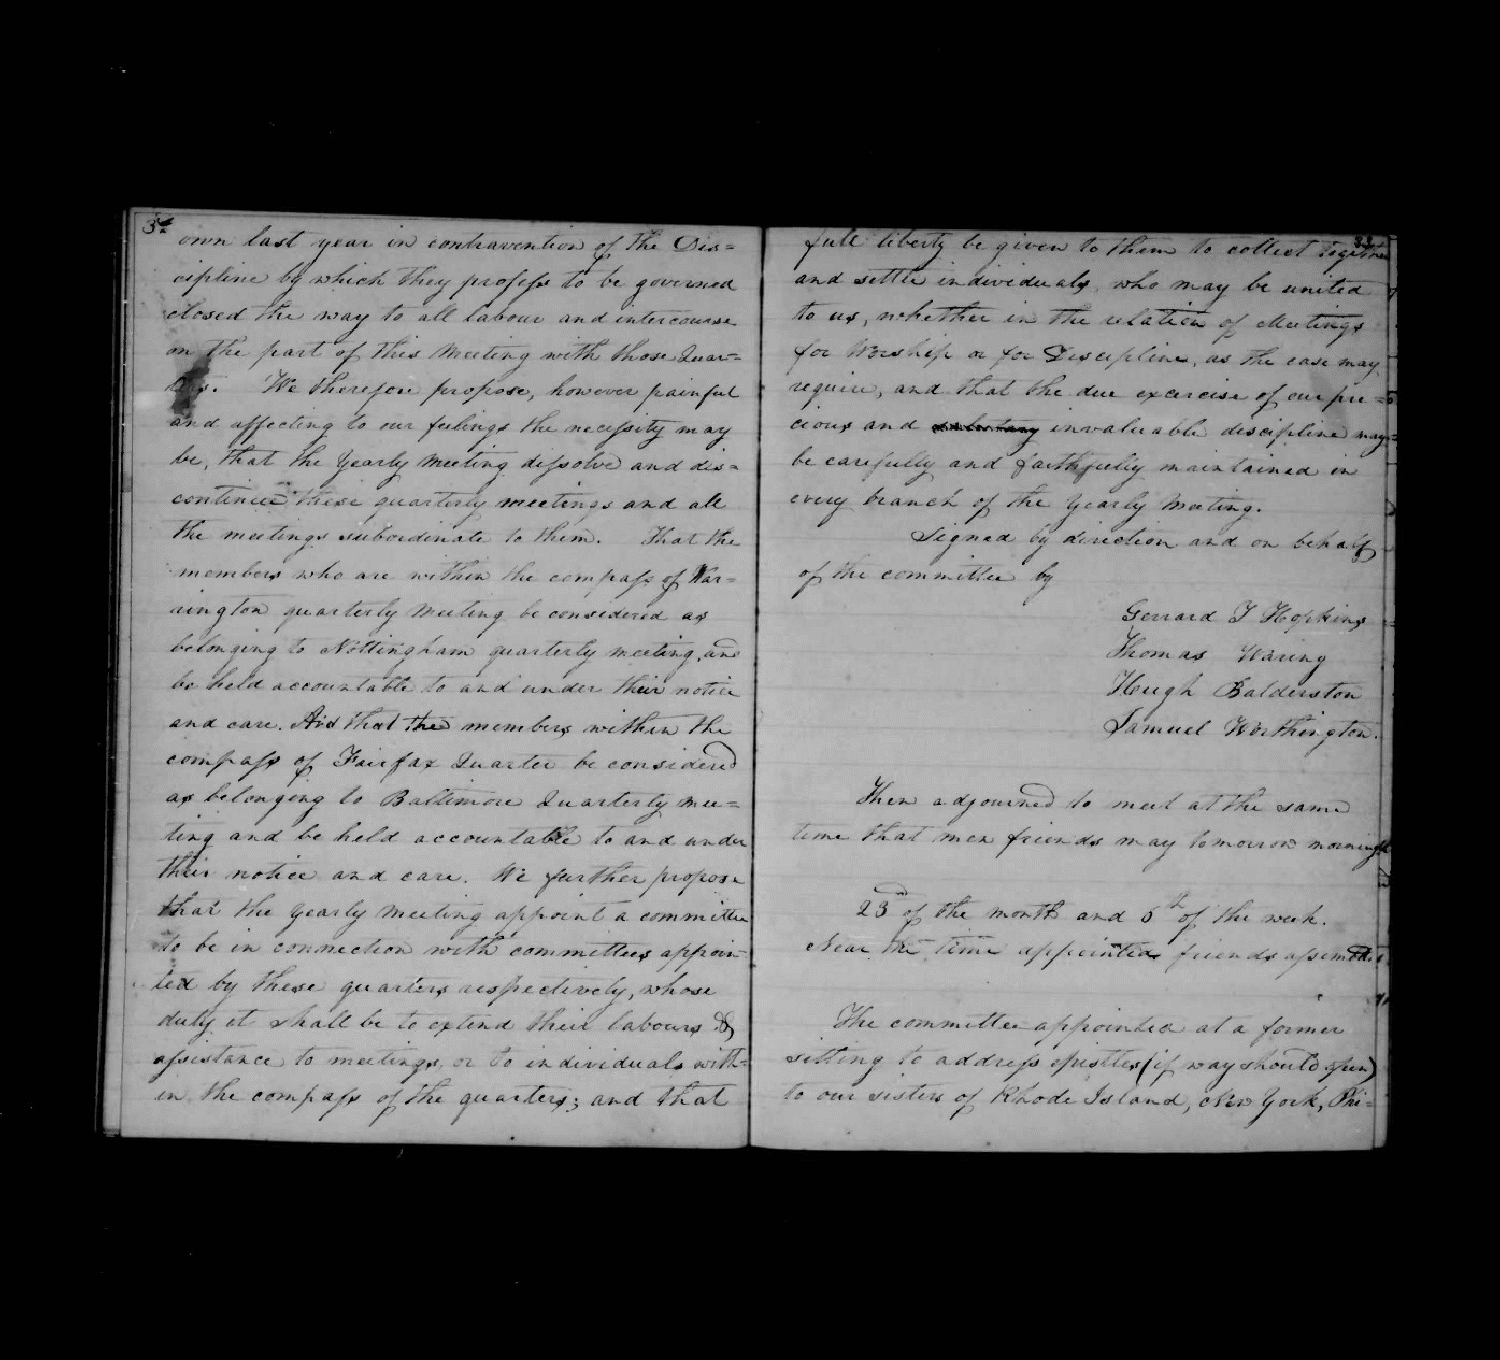 32
own last year in contravention of the Dis=
cipline by which they profess to be governed
closed the way to all labour and intercourse
on the part of this Meeting with those Quar=
ters. We therefore propose, however painful
and affecting to our feelings the necessity may
be, that the Yearly Meeting dissolve and dis=
continue these quarterly meetings and all
the meetings subordinate to them. That the
members who are within the compass of War=
rington quarterly Meeting be considered as
belonging to Nottingham quarterly meeting, and
be held accountable to and under their notice
and care. And that the members within the
compass of Fairfax Quarter be considered
as belonging to Baltimore Quarterly mee=
ting and be held accountable to and under
their notice and care. We further propose
that the Yearly Meeting appoint a committee
to be in connection with committees appoin=
ted by these quarters respectively, whose
duty it shall be to extend their labours &
assistance to meetings, or to individuals with=
in the compass of the quarters; and that
33
full liberty be given to them to collect together
and settle individuals, who may be united
to us, whether in the relation of Meetings
for Worship or for Discipline, as the case may
require, and that the due exercise of our pre=
cious and invaluable discipline may
be carefully and faithfully maintained in
every branch of the Yearly Meeting.
Signed by direction and on behalf
of the committee by
Gerrard T Hopkins
Thomas Waring
Hugh Balderston
Samuel Worthington.
Then adjourned to meet at the same
time that men friends may tomorrow morning
23d of the month and 5th of the week.
Near the time appointed friends assembled
The committee appointed at a former
sitting to address epistles (if way should open)
to our sisters of Rhode Island, New York, Phi=